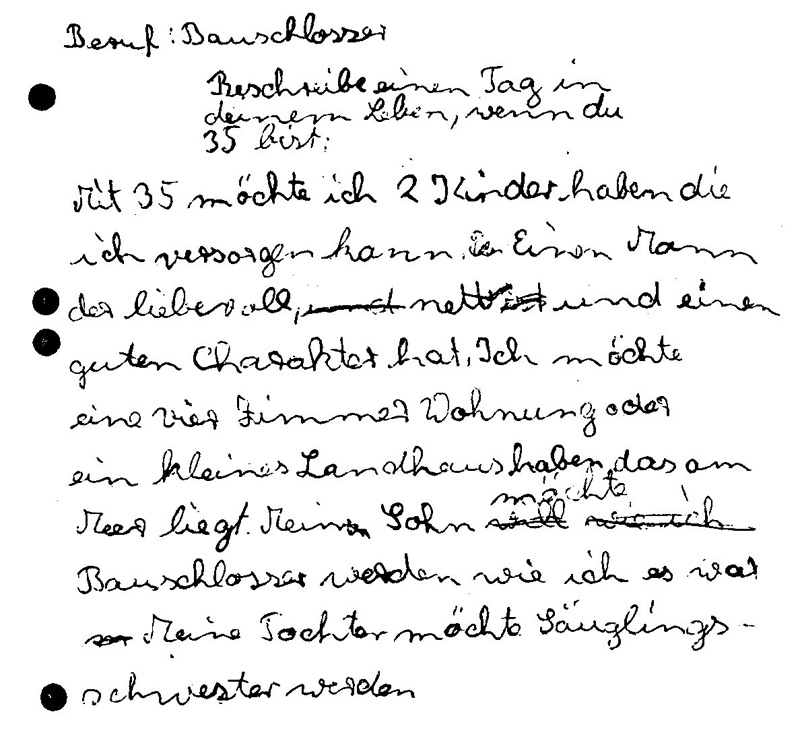 Beruf: Bauschlosser
Beschreibe einen Tag in
deinem Leben, wenn du
35 bist:
Mit 35 möchte ich 2 Kinder haben die
ich versorgen kann. Einen Mann
der liebevoll, nett und einen
guten Charakter hat. Ich möchte
eine vier Zimmer Wohnung oder
ein kleines Landhaus haben, das am
möchte
Meer liegt. Mein Sohn will wie ich
Bauschlosser werden wie ich es war
Meine Tochter möchte Säuglings-
schwester werden